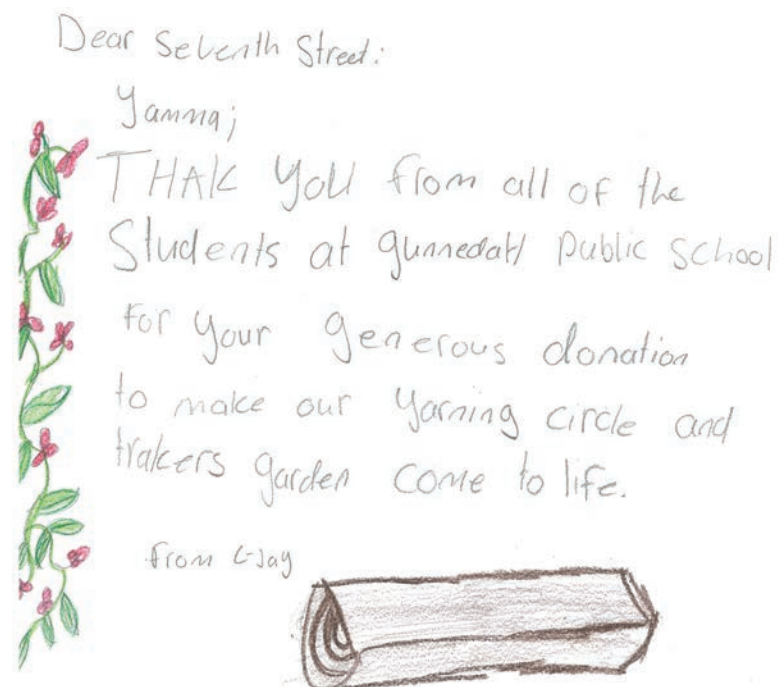 Dear Seventh Street:
Yamma;
THAK YOU from all of the
Students at gunnedaH Public School
For your generous donation
to make our yarning circle and
trakers garden come to life.
from L-Jay